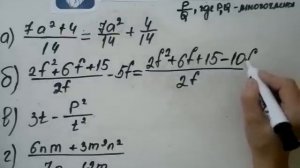 P/Q, где P,Q - многочлены
а) (7a²+4)/14 = 7a²/14 + 4/14
б) (2f²+6f+15)/2f - 5f = (2f²+6f+15-10f)/2f
в) 3t - P²/t²
г) 6nm + 3m²n²